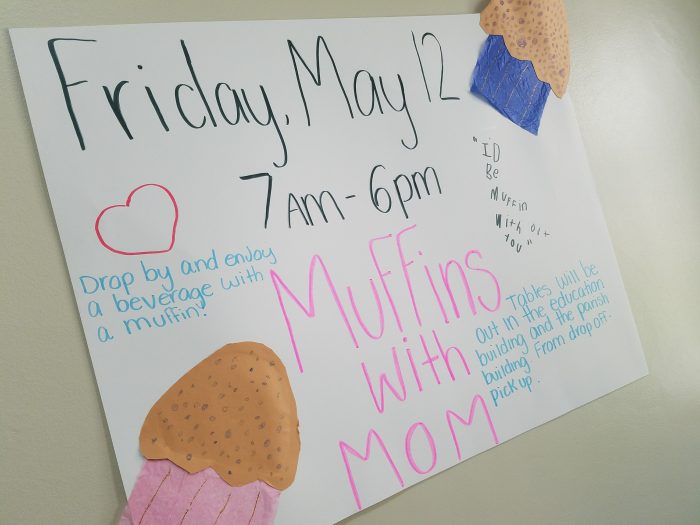 Friday, May 12
7AM-6pm
"I'D
Be
Muffin
With out
You"
Drop by and enjoy
a beverage with
a muffin!
Muffins
with
MOM
Tables will be
out in the education
building and the parish
building from drop off.
pick up.